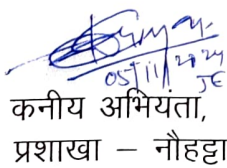 05/11/2024
JE
कनीय अभियंता,
प्रशाखा – नौहट्टा